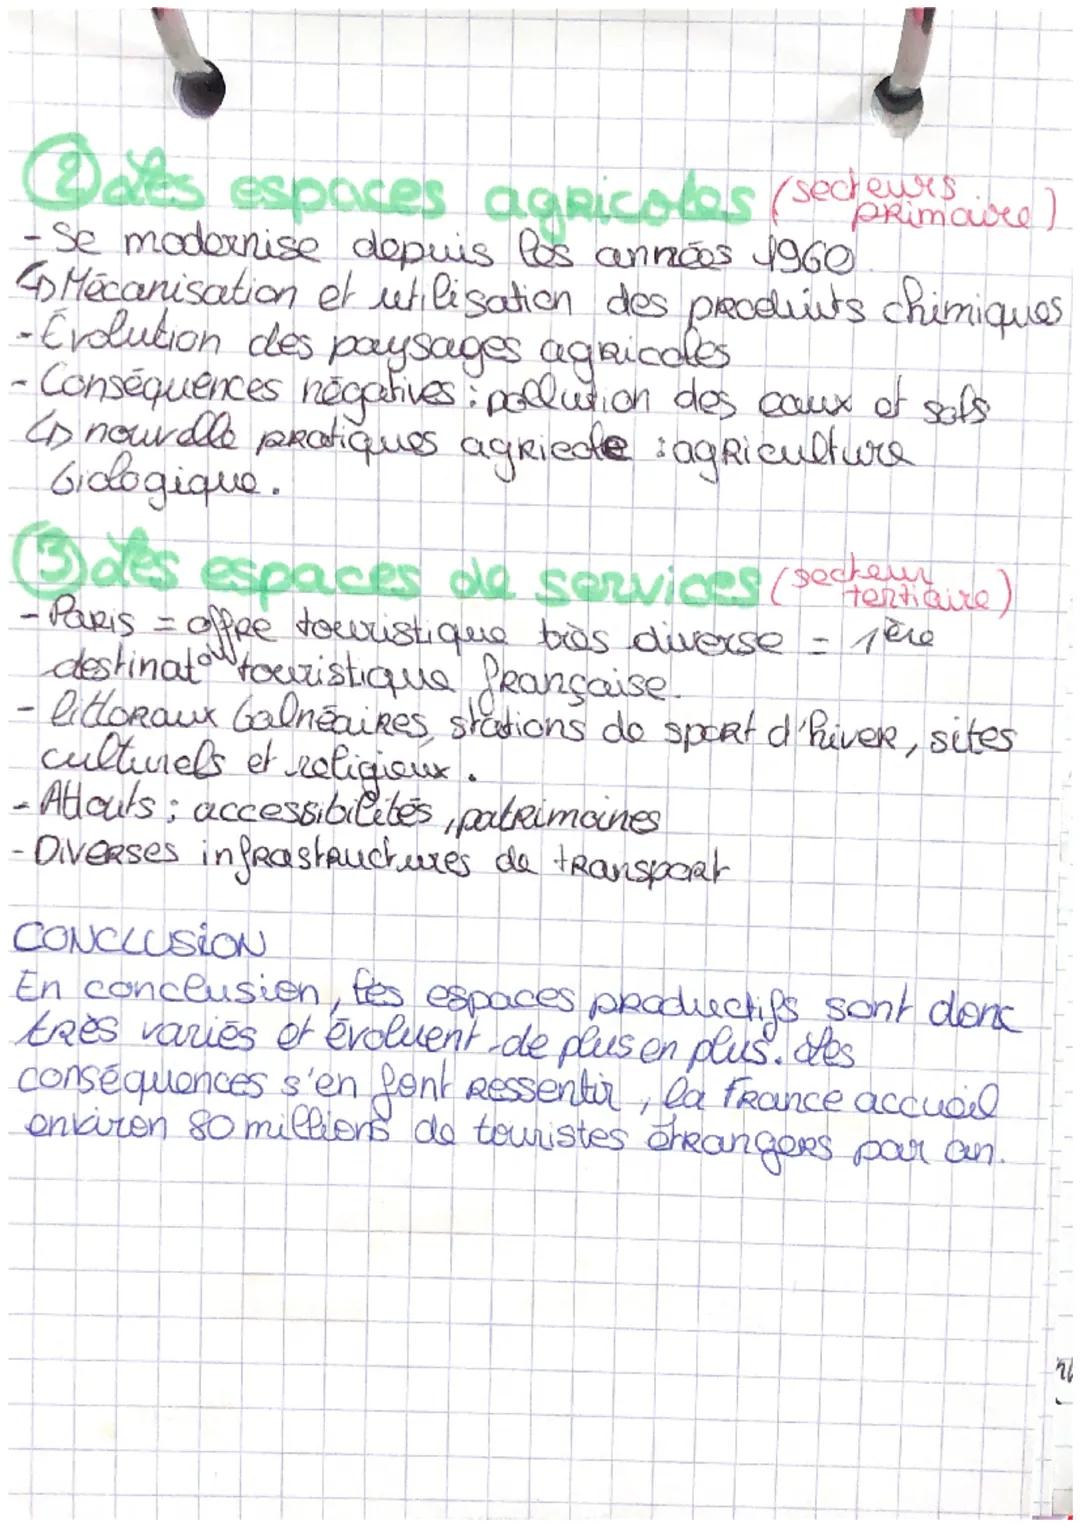 ② Les espaces agricoles (secteurs primaire)
- Se modernise depuis les années 1960
↳ Mécanisation et utilisation des produits chimiques
- Évolution des paysages agricoles
- Conséquences négatives : pollution des eaux et sols
↳ nouvelle pratiques agricole : agriculture
biologique.
③ Les espaces de services (secteur tertiaire)
- Paris = offre touristique très diverse = 1ère
destinat° touristique française.
- littoraux balnéaires, stations de sport d'hiver, sites
culturels et religieux.
- Attouts : accessibilités, patrimoines
- Diverses infrastructures de transport
CONCLUSION
En conclusion, les espaces productifs sont donc
très variés et évoluent de plus en plus. Les
conséquences s'en font ressentir, la France accueil
environ 80 millions de touristes étrangers par an.